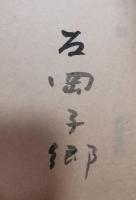 石岡子郷